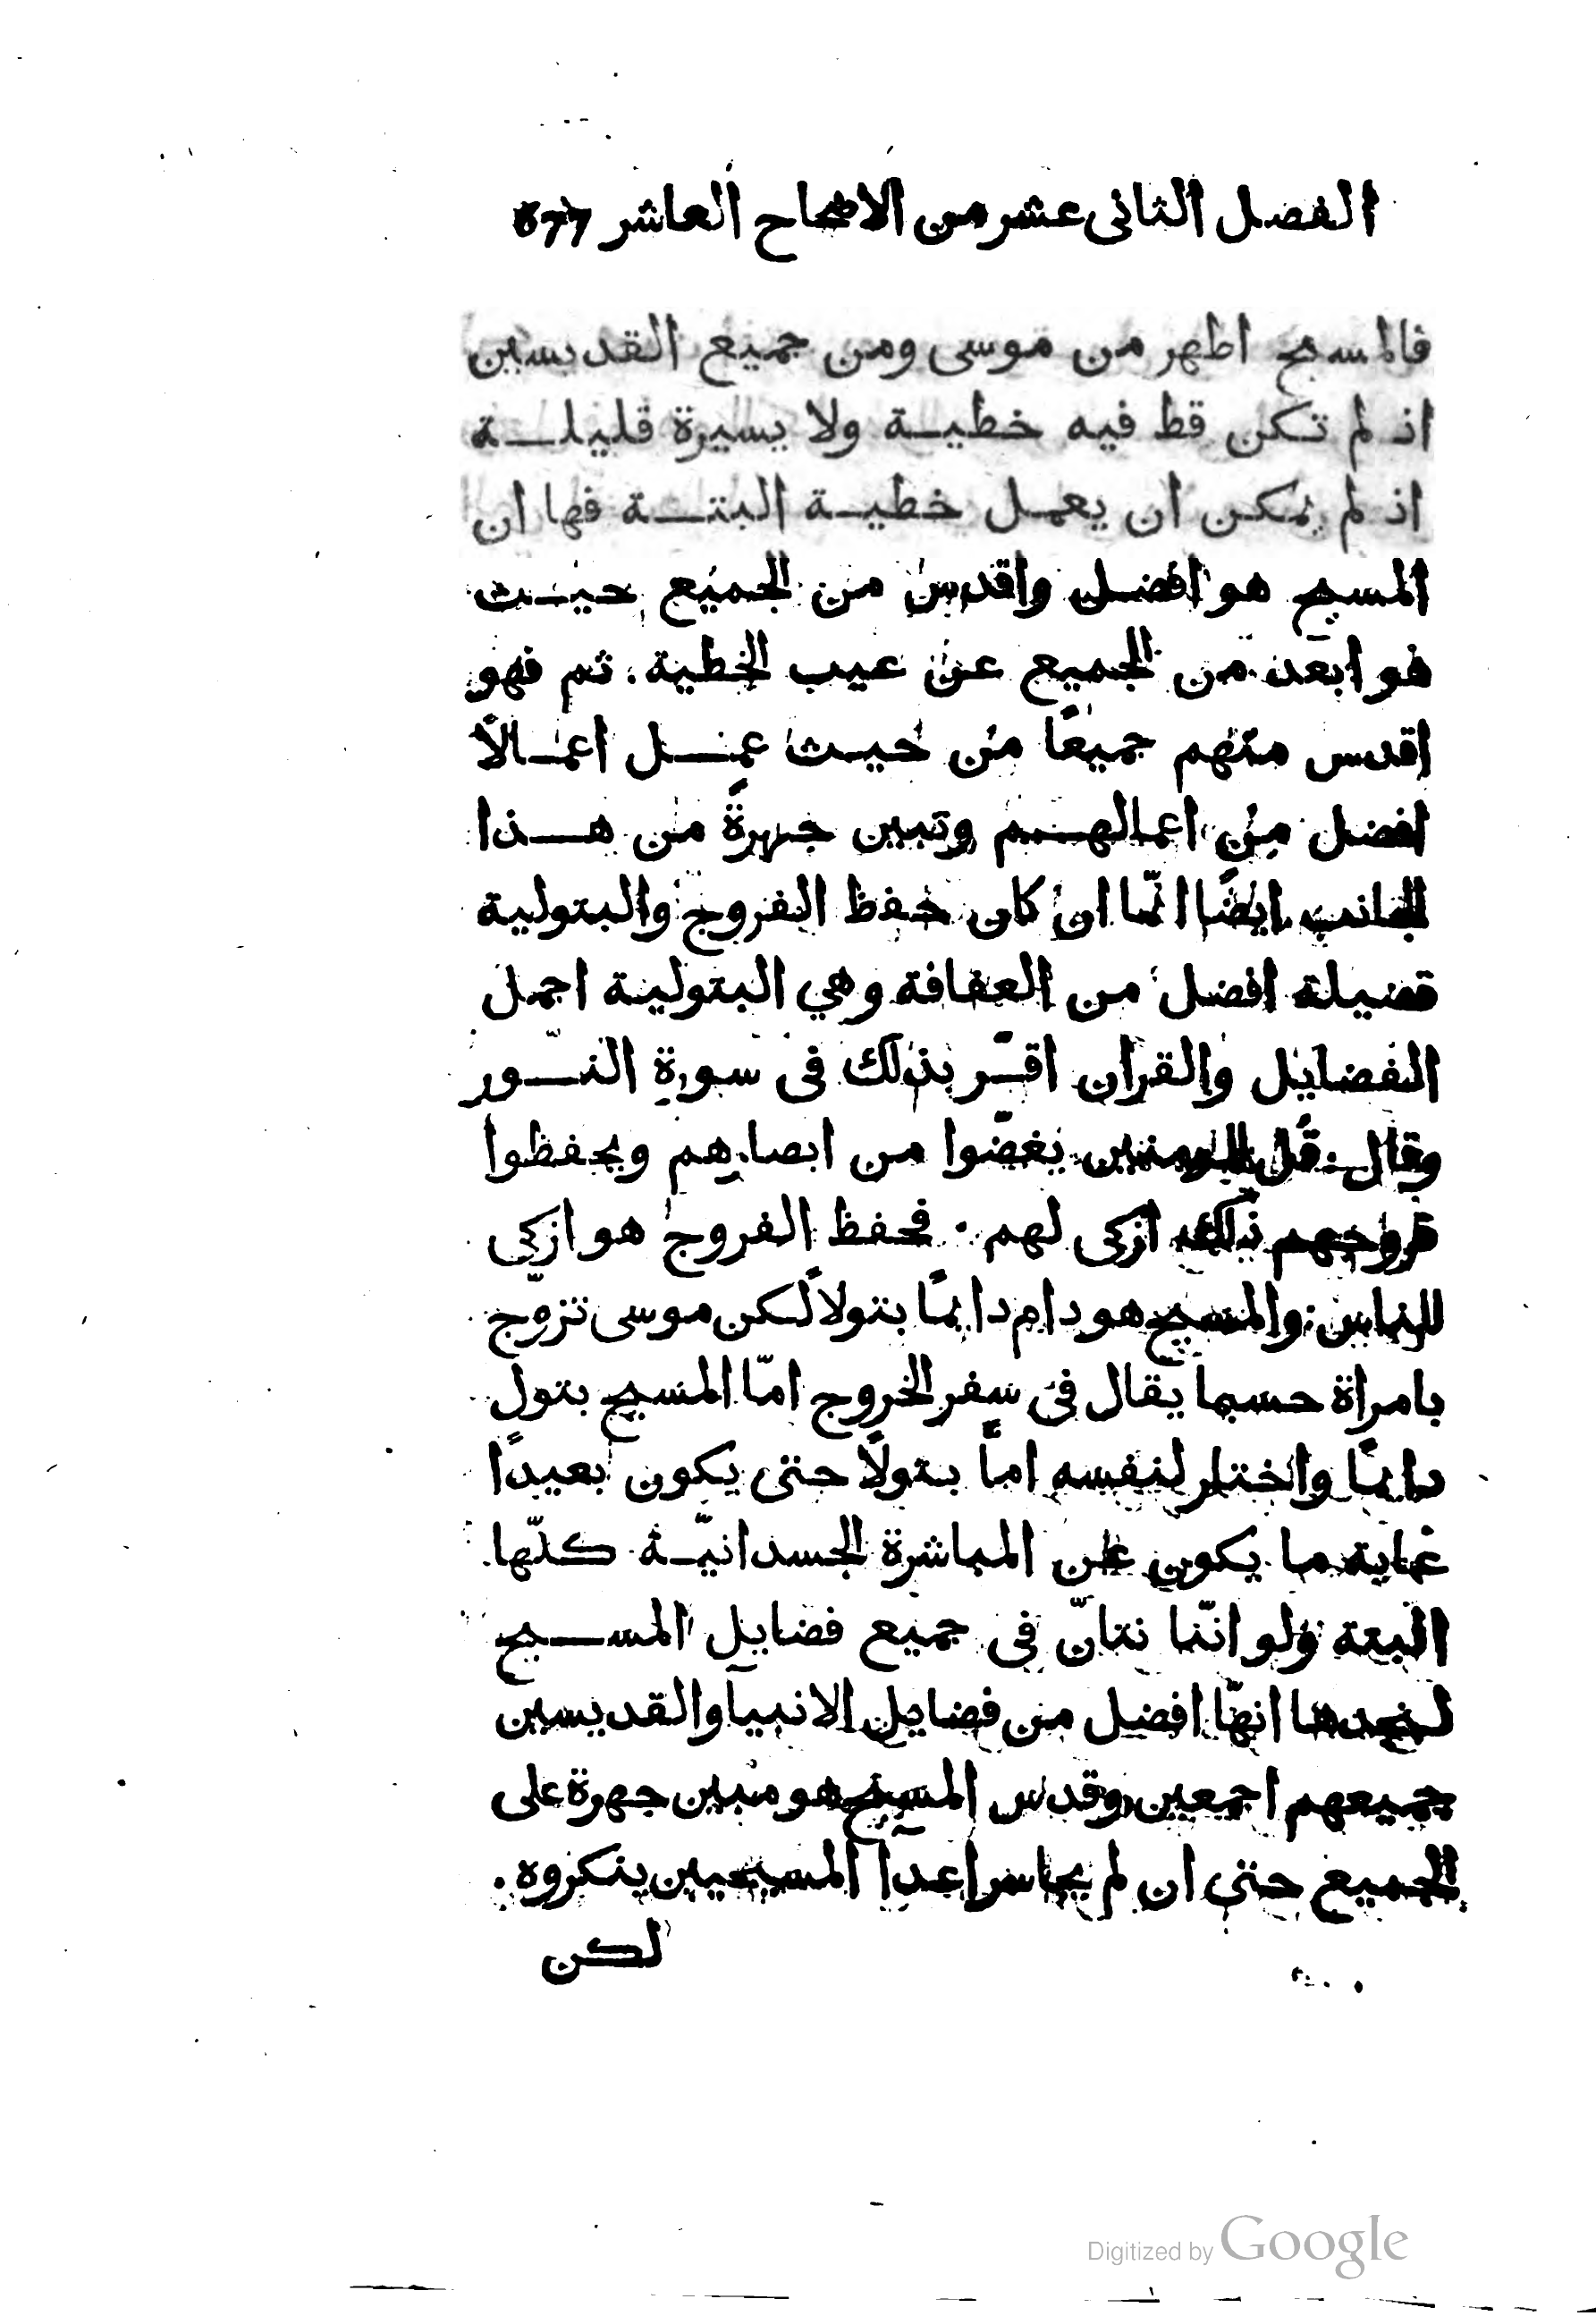 الفصل الثانى عشر من الاصحاح العاشر 677
فالمسيح اطهر من موسى ومن جميع القديسين
اذ لم تكن قط فيه خطية ولا يسيرة قليلة
اذ لم يمكن ان يعمل خطية البتة فها ان
المسيح هو افضل واقدس من الجميع حيث
هو ابعد من الجميع عن عيب الخطية . ثم فهو
اقدس منهم جميعًا من حيث عمل اعمالاً
افضل من اعمالهم وتبين جهرةً من هذا
الجانب ايضًا انّما ان كان حفظ الفروج والبتولية
فضيلة افضل من العفافة وهي البتولية اجمل
الفضايل والقران اقرّ بذلك فى سورة النّور
وقال قُل للمومنين يغضّوا من ابصارهم ويحفظوا
فروجهم ذلك ازكى لهم . فحفظ الفروج هو ازكى
للناس والمسيح هو دام دايمًا بتولاً لكن موسى تزوّج
بامراة حسبما يقال فى سفر الخروج امّا المسيح بتول
دايمًا واختار لنفسه اماً بتولاً حتى يكون بعيدًا
غاية ما يكون عن المباشرة الجسدانيّة كلّها
البتة ولو انّنا نتانّ فى جميع فضايل المسيح
لنجدها انهّا افضل من فضايل الانبيآ والقديسين
جميعهم اجمعين وقدس المسيح هو مبين جهرة على
الجميع حتى ان لم يجاسر اعدآ المسيحيين ينكروه .
لكن
Digitized by Google